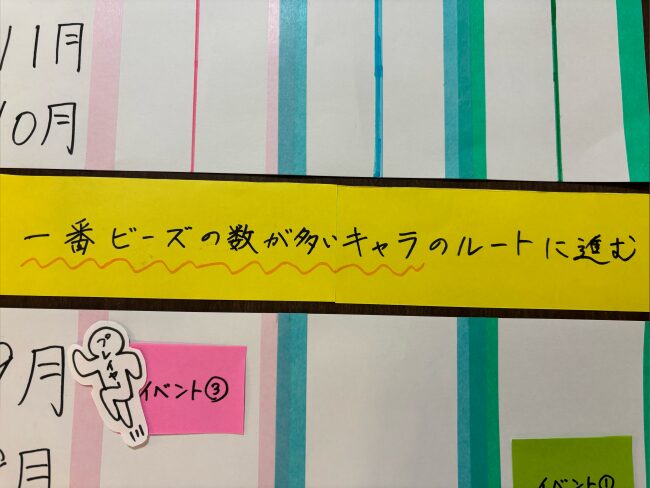 11月
10月
一番ビーズの数が多いキャラのルートに進む
9月
プレイヤー
イベント③
イベント①